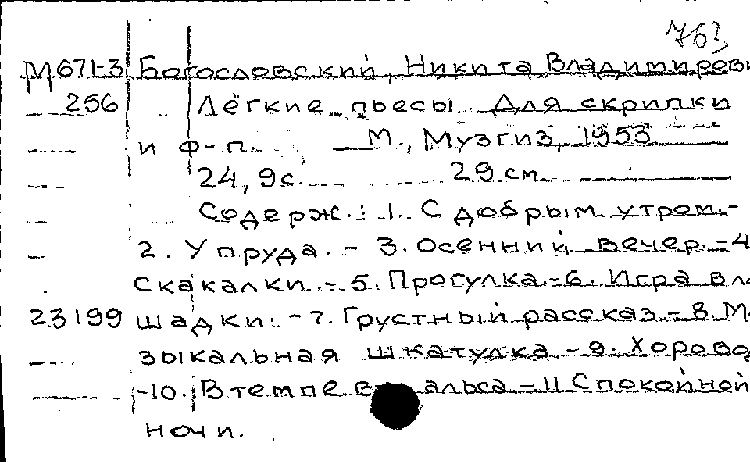 763
М671-3 Богословский, Никита Владимирови
256 Лёгкие пьесы. Для скрипки
и ф-п. М., Музгиз, 1953
24, 9с. 29 см.
Содерж.: 1. С добрым утром.-
2. У пруда. - 3. Осенний вечер.-4
Скакалки.-5. Прогулка.-6. Игра в ло
23199 шадки. -7. Грустный рассказ.-8. М
зыкальная шкатулка -9. Хорово
-10. В темпе вальса.-11 Спокойной
ночи.